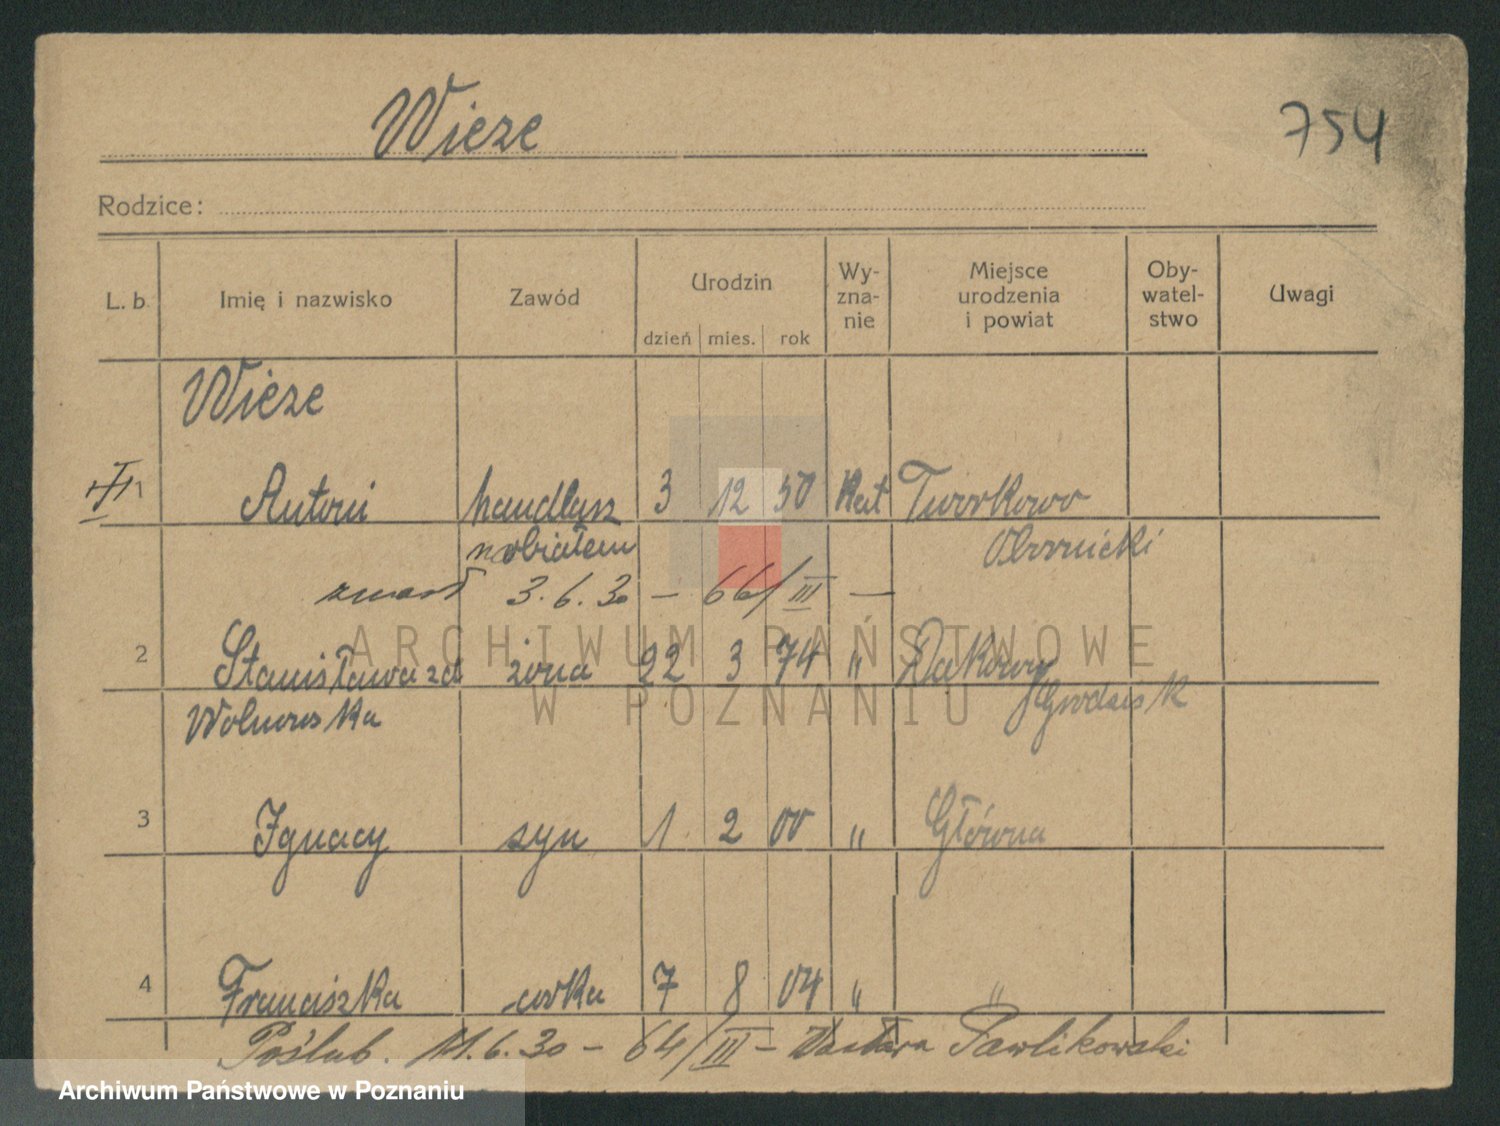 Wieze
754
Rodzice:
L. b. Imię i nazwisko Zawód Urodzin dzień mies. rok Wy-zna-nie Miejsce urodzenia i powiat Oby-watel-stwo Uwagi
Wieze
1 Antoni handlarz 3 12 50 Kat Tworkowo
nabiałem Obornicki
zmarł 3.6.30 – 66/III –
2 Stanisława zd żona 22 3 74 " Dakowy
Wolnowska Grodzisk
3 Ignacy syn 1 2 00 " Główna
4 Franciszka corka 7 8 04 " "
Poślub. 11.6.30 – 64/III – Pawlikowski
ARCHIWUM PAŃSTWOWE
W POZNANIU
Archiwum Państwowe w Poznaniu